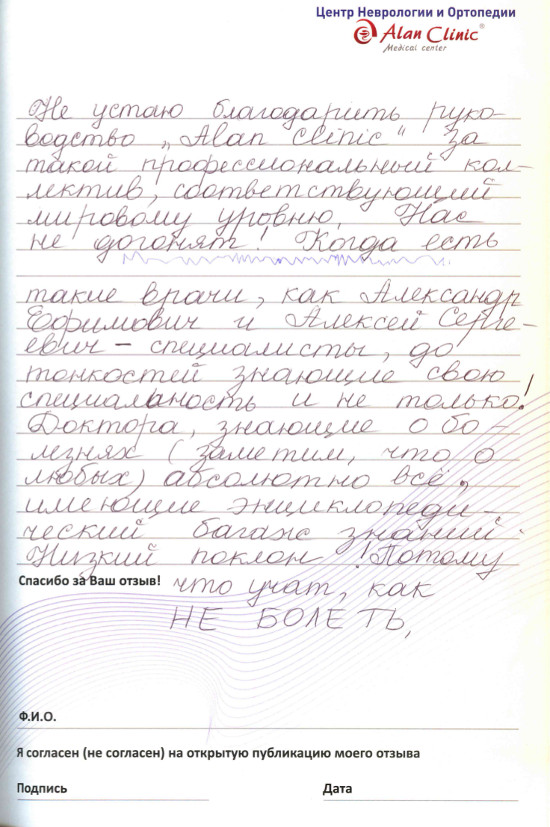 Центр Неврологии и Ортопедии
Alan Clinic®
Medical center
Не устаю благодарить руко-
водство „Alan clinic“ за
такой профессиональный кол-
лектив, соответствующий
мировому уровню. Нас
не догонят! Когда есть
такие врачи, как Александр
Ефимович и Алексей Серге-
евич – специалисты, до
тонкостей знающие свою
специальность и не только!
Доктора, знающие о бо-
лезнях (заметим, что о
любых) абсолютно всё,
имеющие энциклопеди-
ческий багаж знаний.
Низкий поклон! Потому
Спасибо за Ваш отзыв! что учат, как
НЕ БОЛЕТЬ,
Ф.И.О.
Я согласен (не согласен) на открытую публикацию моего отзыва
Подпись Дата